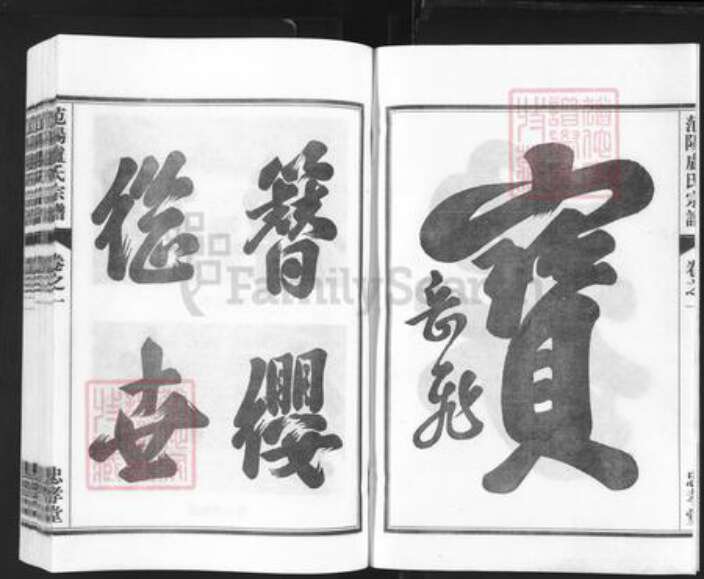 范陽盧氏宗譜
卷之一
寶
岳飛
簪纓
継世
范陽盧氏宗譜
卷之一
忠孝堂
FamilySearch